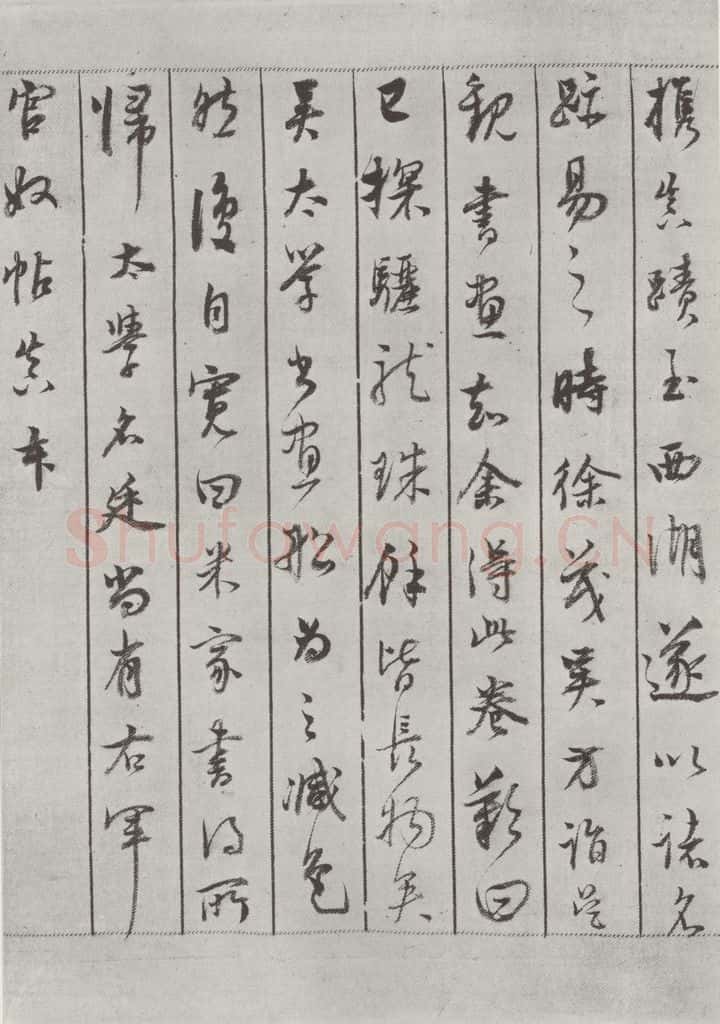 携真蹟至西湖遂以諸名
跡易之時徐茂吳方詣吳
觀書畫知余得此卷歎曰
已探驪龍珠餘皆長物矣
吳太學書畫船為之減色
然復自寬曰米家書得所
歸太學名廷尚有右軍
官奴帖真本
Shufawang.CN